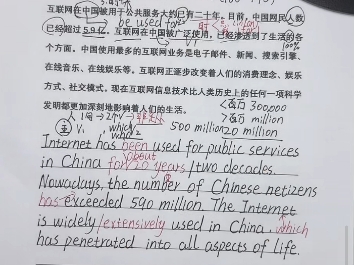 互联网在中国被用于公共服务大约已有二十年。目前,中国网民人数
be used for
已经超过5.9亿。互联网在中国被广泛使用,已经渗透到了生活的各
100%
个方面。中国使用最多的互联网业务是电子邮件、新闻、搜索引擎、
在线音乐、在线娱乐等。互联网正逐步改变着人们的消费理念、娱乐
方式、社交模式。现在互联网信息技术比人类历史上的任何一项科学
发明都更加深刻地影响着人们的生活。
<百万 300,000
>百万 million
主 Vi which
500 million 20 million
Internet has been used for public services
about
in China for 20 years/two decades.
Nowadays, the number of Chinese netizens
has exceeded 590 million. The Internet
is widely/extensively used in China, which
has penetrated into all aspects of life.